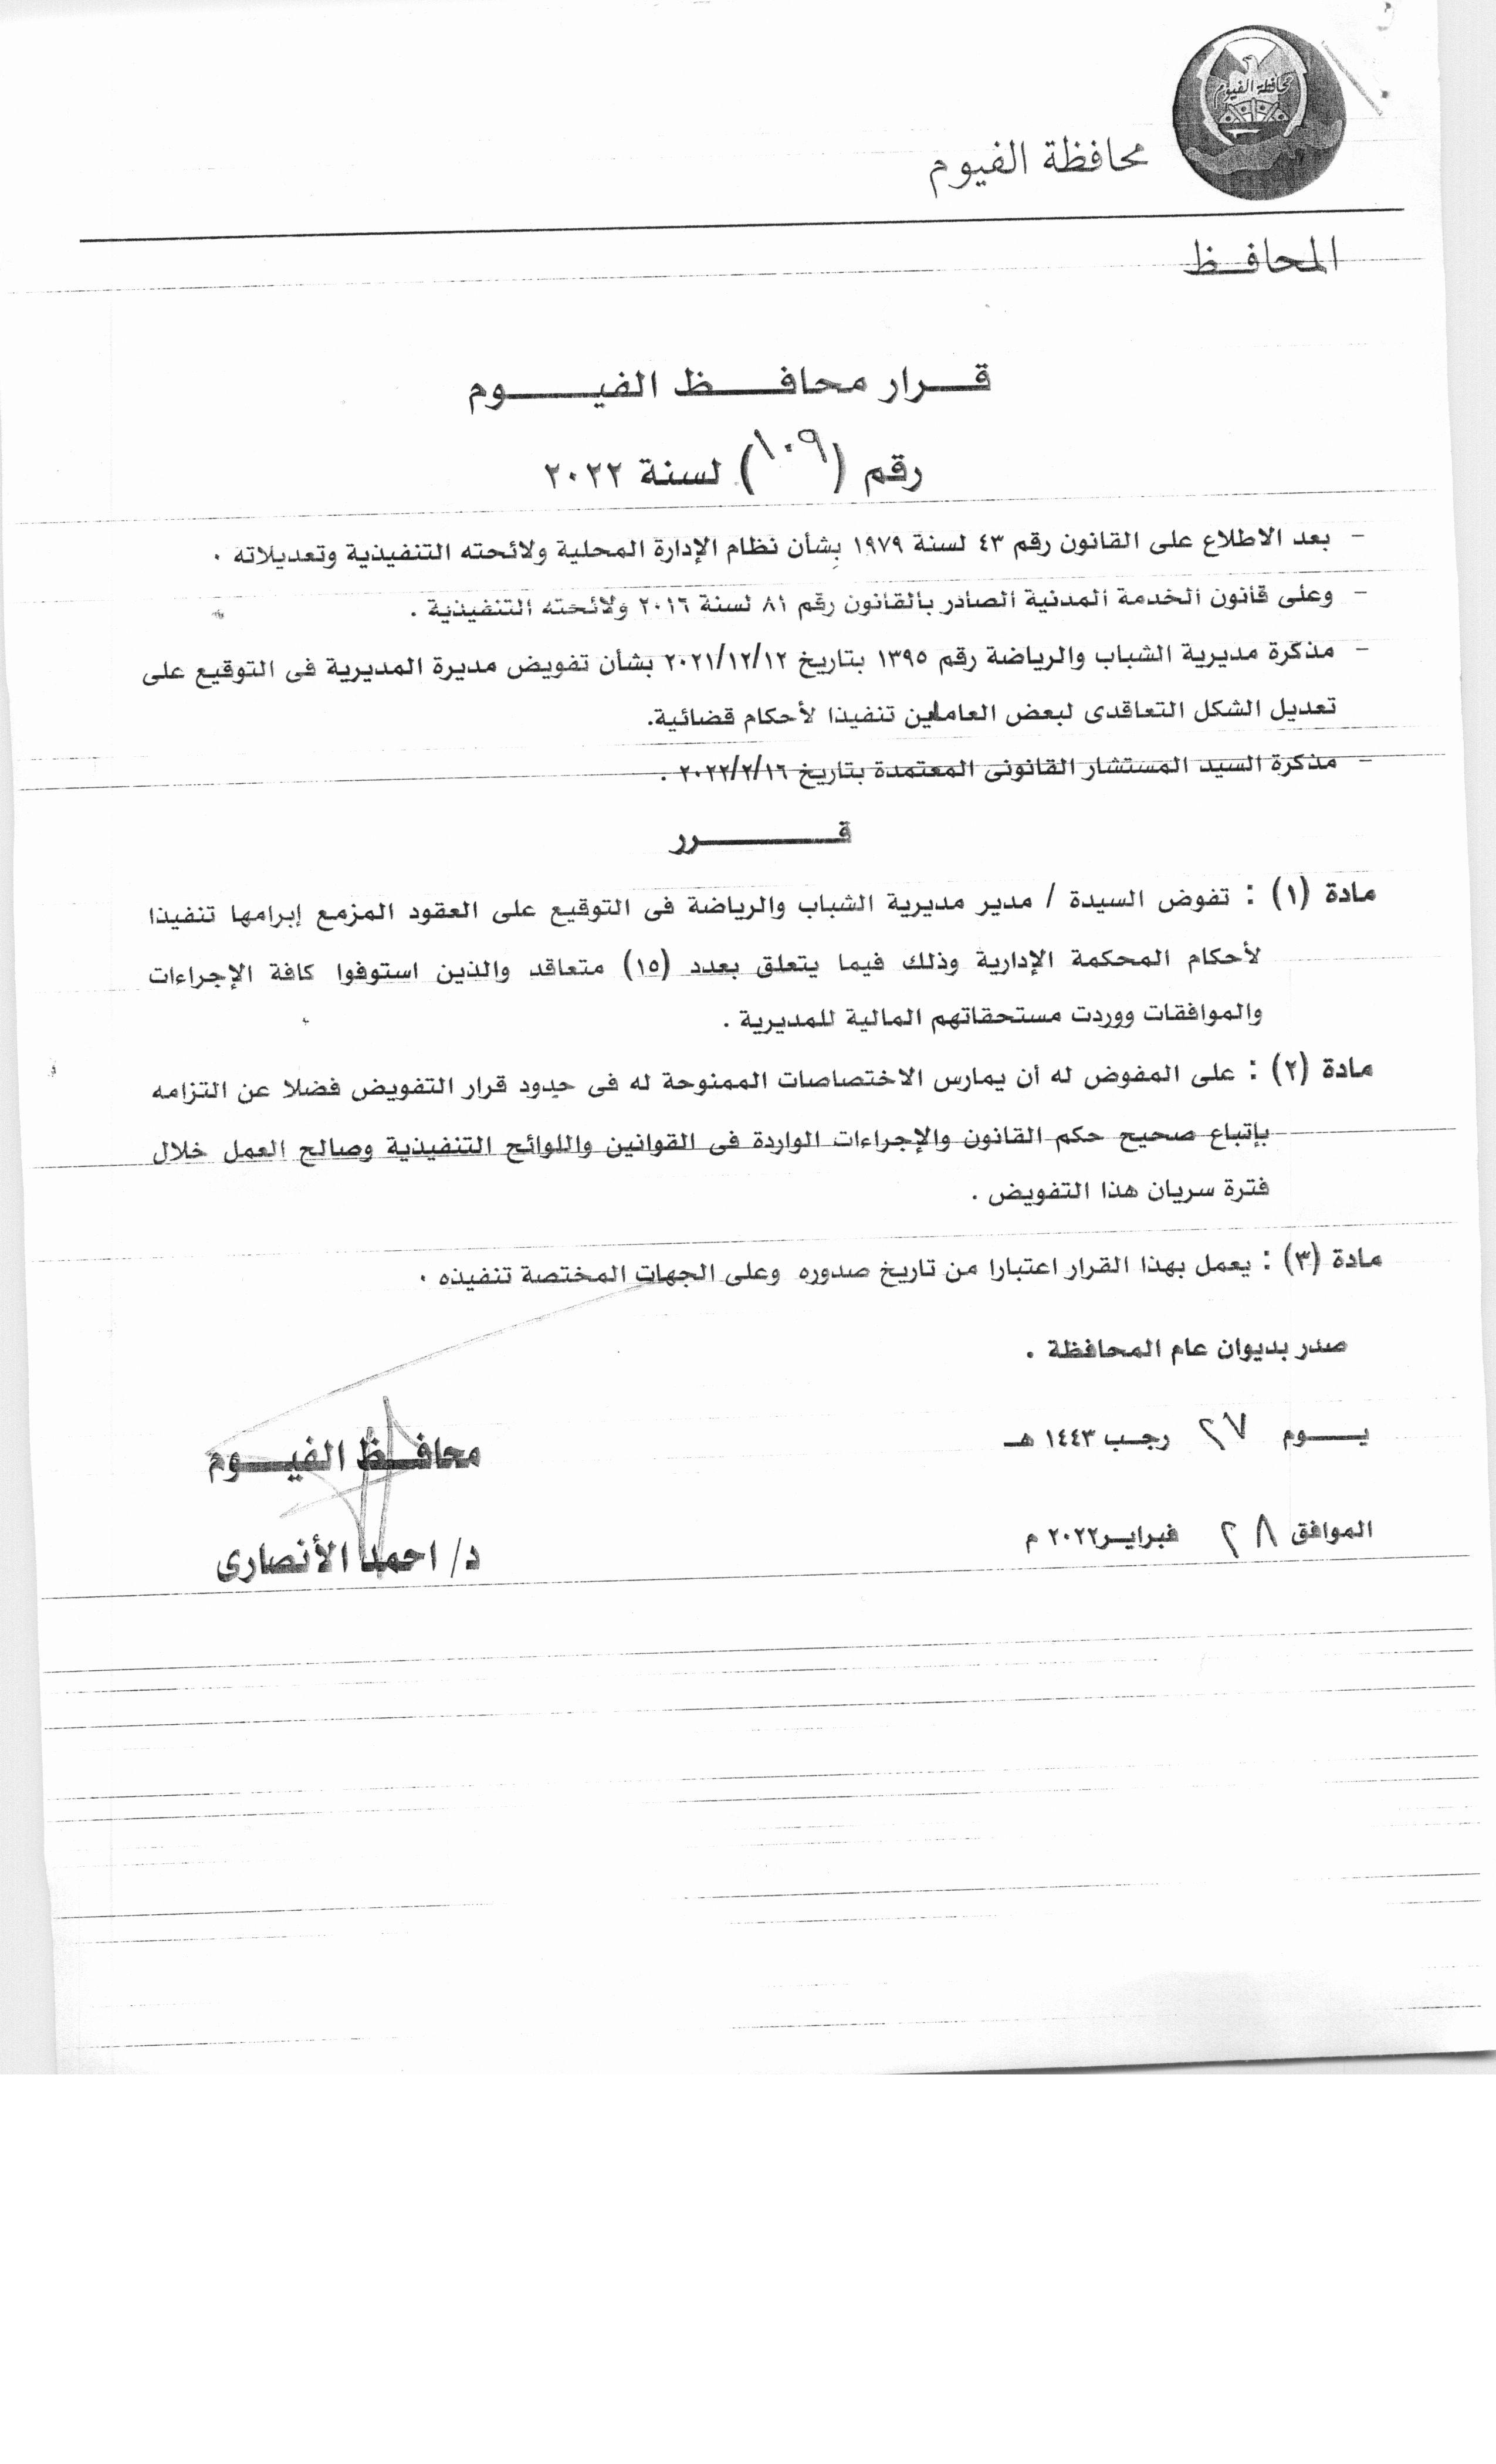 محافظة الفيوم
محافظة الفيوم
المحافظ
قرار محافظ الفيوم
رقم (١٠٩) لسنة ٢٠٢٢
- بعد الاطلاع على القانون رقم ٤٣ لسنة ١٩٧٩ بشأن نظام الإدارة المحلية ولائحته التنفيذية وتعديلاته .
- وعلى قانون الخدمة المدنية الصادر بالقانون رقم ٨١ لسنة ٢٠١٦ ولائحته التنفيذية .
- مذكرة مديرية الشباب والرياضة رقم ١٣٩٥ بتاريخ ٢٠٢١/١٢/١٢ بشأن تفويض مديرة المديرية فى التوقيع على
تعديل الشكل التعاقدى لبعض العاملين تنفيذا لأحكام قضائية.
- مذكرة السيد المستشار القانونى المعتمدة بتاريخ ٢٠٢٢/٢/١٦ .
قرر
مادة (١) : تفوض السيدة / مدير مديرية الشباب والرياضة فى التوقيع على العقود المزمع إبرامها تنفيذا
لأحكام المحكمة الإدارية وذلك فيما يتعلق بعدد (١٥) متعاقد والذين استوفوا كافة الإجراءات
والموافقات ووردت مستحقاتهم المالية للمديرية .
مادة (٢) : على المفوض له أن يمارس الاختصاصات الممنوحة له فى حدود قرار التفويض فضلا عن التزامه
بإتباع صحيح حكم القانون والإجراءات الواردة فى القوانين واللوائح التنفيذية وصالح العمل خلال
فترة سريان هذا التفويض .
مادة (٣) : يعمل بهذا القرار اعتبارا من تاريخ صدوره وعلى الجهات المختصة تنفيذه .
صدر بديوان عام المحافظة .
يوم ٢٧ رجب ١٤٤٣ هـ
محافظ الفيوم
الموافق ٢٨ فبراير٢٠٢٢ م
د/ احمد الأنصارى